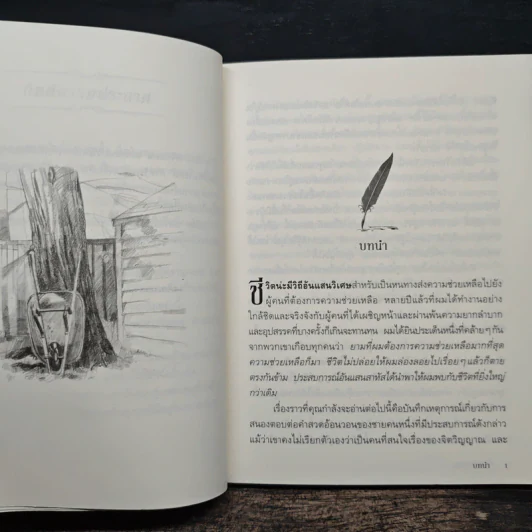 บทนำ
ชีวิตน่ะมีวิธีอันแสนวิเศษสำหรับเป็นหนทางส่งความช่วยเหลือไปยัง
ผู้คนที่ต้องการความช่วยเหลือ หลายปีแล้วที่ผมได้ทำงานอย่าง
ใกล้ชิดและจริงจังกับผู้คนที่ได้เผชิญหน้าและผ่านพ้นความยากลำบาก
และอุปสรรคที่บางครั้งก็เกินจะทานทน ผมได้ยินประเด็นหนึ่งที่คล้ายๆ กัน
จากพวกเขาเกือบทุกคนว่า ยามที่ผมต้องการความช่วยเหลือมากที่สุด
ความช่วยเหลือก็มา ชีวิตไม่ปล่อยให้ผมล่องลอยไปเรื่อยๆ แล้วก็ตาย
ตรงกันข้าม ประสบการณ์อันแสนสาหัสได้นำพาให้ผมพบกับชีวิตที่ยิ่งใหญ่
กว่าเดิม
เรื่องราวที่คุณกำลังจะอ่านต่อไปนี้คือบันทึกเหตุการณ์เกี่ยวกับการ
สนองตอบต่อคำสวดอ้อนวอนของชายคนหนึ่งที่มีประสบการณ์ดังกล่าว
แม้ว่าเขาคงไม่เรียกตัวเองว่าเป็นคนที่สนใจเรื่องของจิตวิญญาณ และ
บทนำ 1